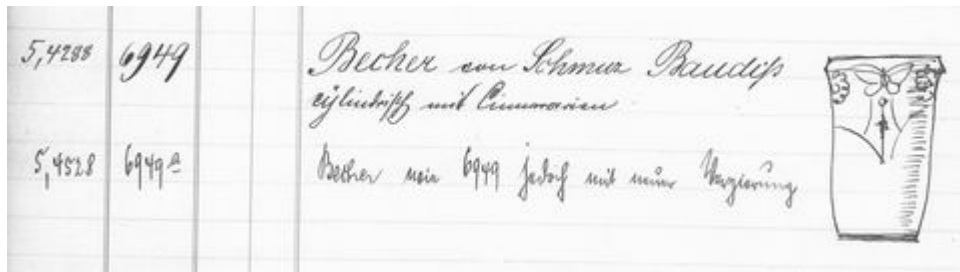 5,4288 6949 Becher von Schmuz Baudiß
cÿlindrisch mit Cinnerarien
5,4528 6949 a Becher wie 6949 jedoch mit neuer Verzierung